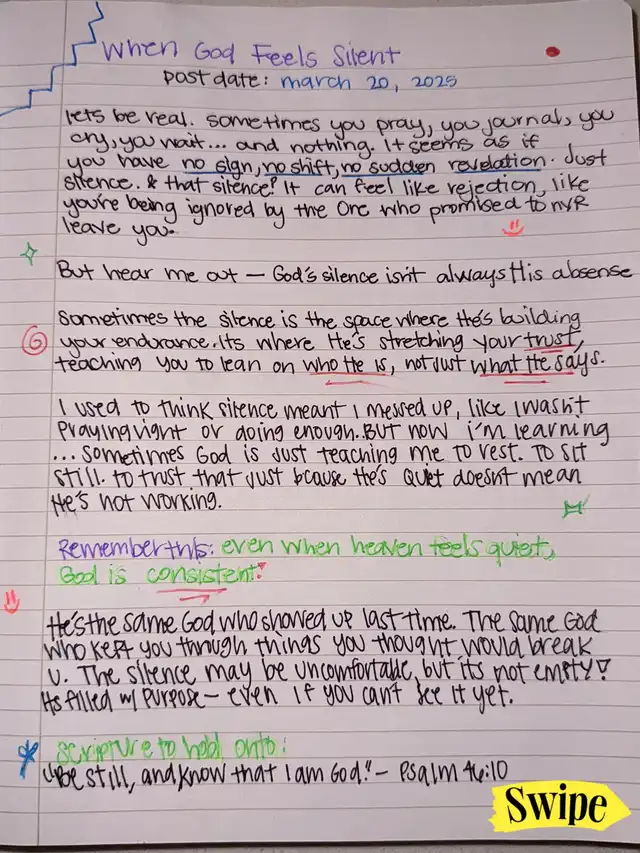 When God Feels Silent
post date: march 20, 2025
lets be real. sometimes you pray, you journal, you
cry, you wait... and nothing. It seems as if
you have no sign, no shift, no sudden revelation. Just
silence. & that silence? It can feel like rejection, like
you're being ignored by the One who promised to nvR
leave you.
But hear me out — God's silence isn't always His absense
Sometimes the silence is the space where He's building
your endurance. Its where He's stretching your trust,
teaching you to lean on who He is, not just what He says.
I used to think silence meant I messed up, like I wasn't
praying right or doing enough. BUT now i'm learning
... sometimes God is just teaching me to rest. To sit
still. to trust that just bcause He's quiet doesnt mean
He's not working.
Remember this: even when heaven feels quiet,
God is consistent!
He's the same God who showed up last time. The same God
who kept you through things you thought would break
u. The silence may be uncomfortable, but its not empty!
Its filled w/ purpose — even if you can't see it yet.
scripture to hold onto:
"Be still, and know that I am God." — Psalm 46:10
Swipe